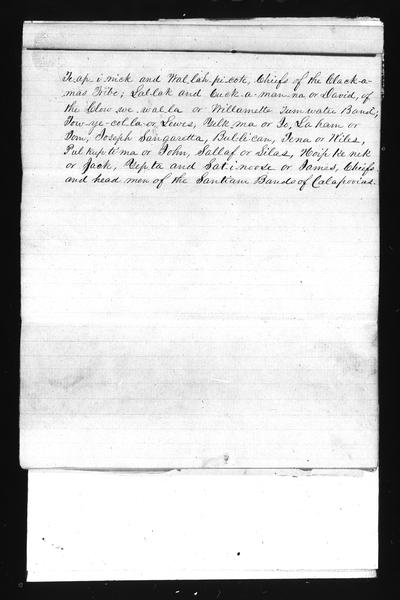 Te-ap-i-nick and Wal-lah-pi-cote, Chiefs of the Clack-a-
mas Tribe; Lal-lak and Cuck-a-man-na or David, of
the Clow-we-wal-la or Willamette Tum-water Band;
Tow-ye-col-la or Lewis, Yelk-ma or Jo, La-ham or
Tom, Joseph Sanqaretta, Pulli-can, Te-na or Kiles,
Pul-kup-ti-ma or John, Sallaf or Silas, Hoip-ke-nek
or Jack, Yep-ta and Sat-i-noose or James, Chiefs
and head men of the Santiam Bands of Calapooias.